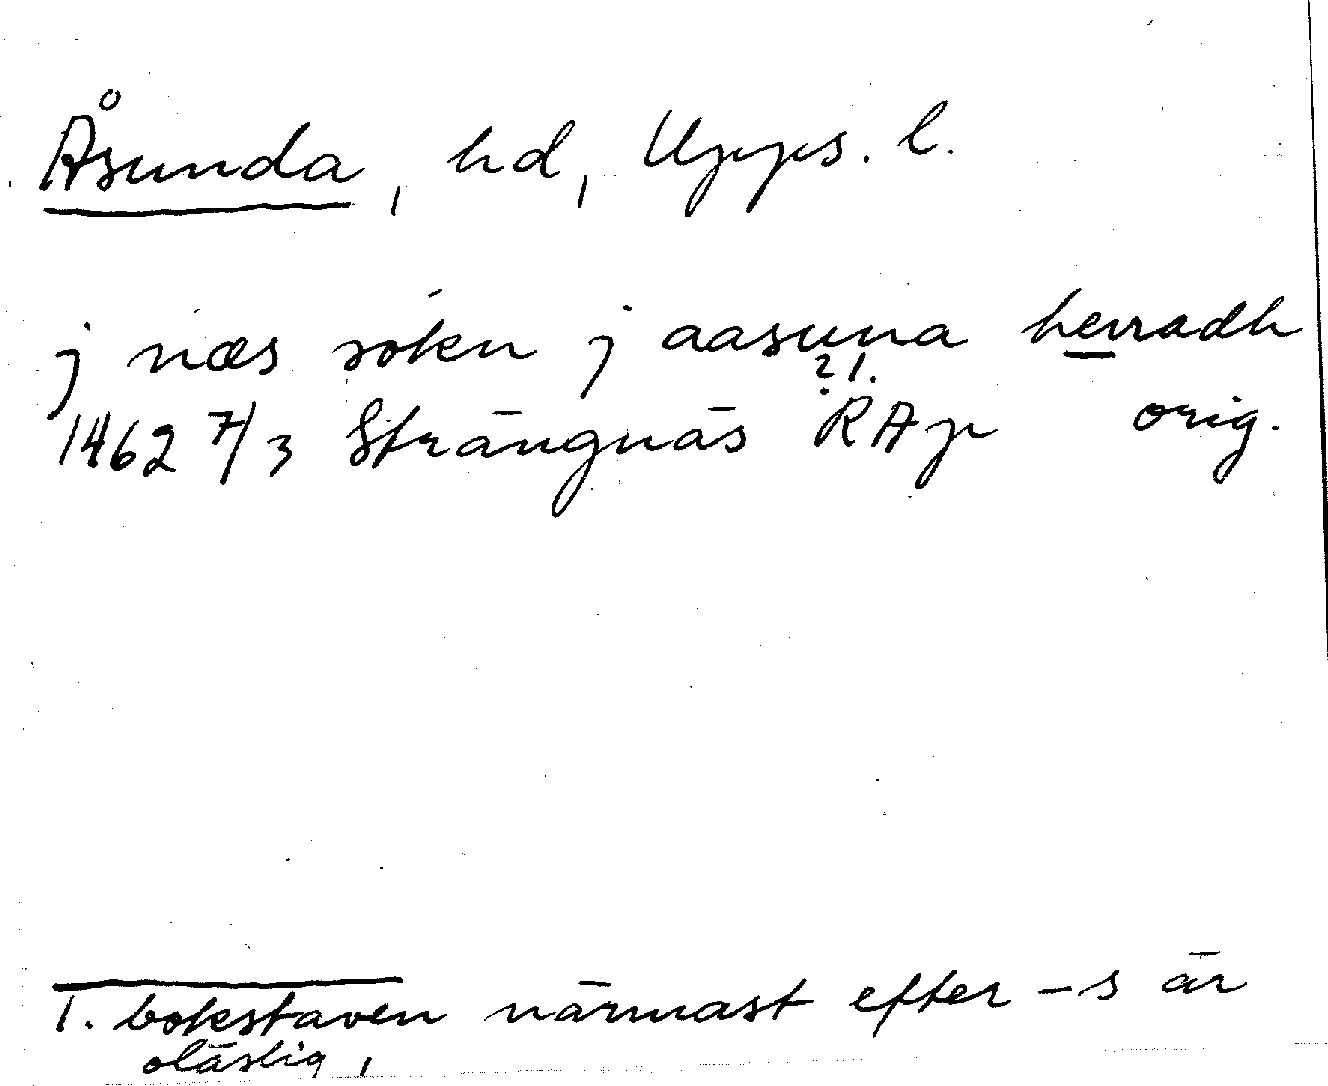 Åsunda, hd, Upps. l.
j næs sokn j aasuna herradh
? 1.
1462 7/3 Strängnäs RAp orig.
1. bokstaven närmast efter -s är
oläslig,